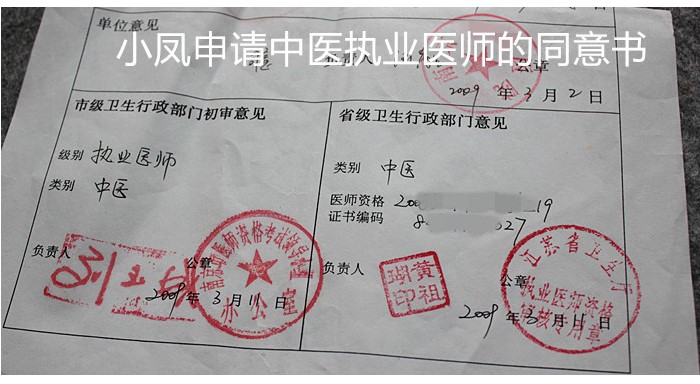 单位意见
小凤申请中医执业医师的同意书
负责人
公章
2009 年 3 月 2 日
市级卫生行政部门初审意见
级别 执业医师
类别 中医
负责人
公章
南京市医师资格考试领导小组
办公室
2009 年 3 月 11 日
省级卫生行政部门意见
类别 中医
医师资格 200 19
证书编码 8 27
负责人
黄祖瑚印
公章
江苏省卫生厅
执业医师资格
审核专用章
2009 年 3 月 11 日